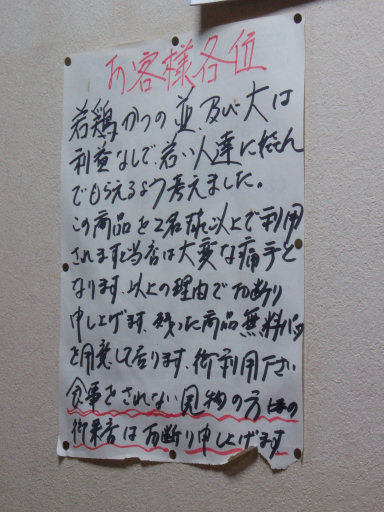 お客様各位
若鶏かつの並、及び大は
利益なしで、若い人達に喜んで
でもらえるよう考えました。
この商品を2名様以上で利用
されますと当店は大変な痛手と
なります、以上の理由でお断り
申し上げます、残った商品無料パック
を用意して居ります、御利用下さい
食事をされない見物の方の
御来店はお断り申し上げます